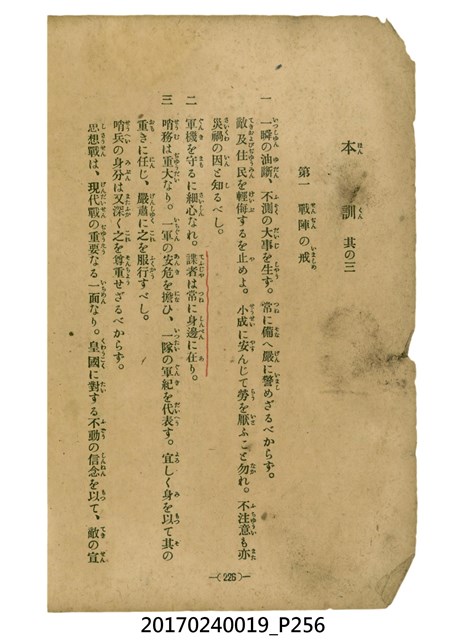 本訓 其の三
第一 戰陣の戒
一 一瞬の油斷、不測の大事を生ず。常に備へ嚴に警めざるべからず。
敵及住民を輕侮するを止めよ。小成に安んじて勞を厭ふこと勿れ。不注意も亦
災禍の因と知るべし。
二 軍機を守るに細心なれ。諜者は常に身邊に在り。
三 哨務は重大なり。一軍の安危を擔ひ、一隊の軍紀を代表す。宜しく身を以て其の
重きに任じ、嚴肅に之を服行すべし。
哨兵の身分は又深く之を尊重せざるべからず。
思想戰は、現代戰の重要なる一面なり。皇國に對する不動の信念を以て、敵の宣
—(226)—
20170240019_P256